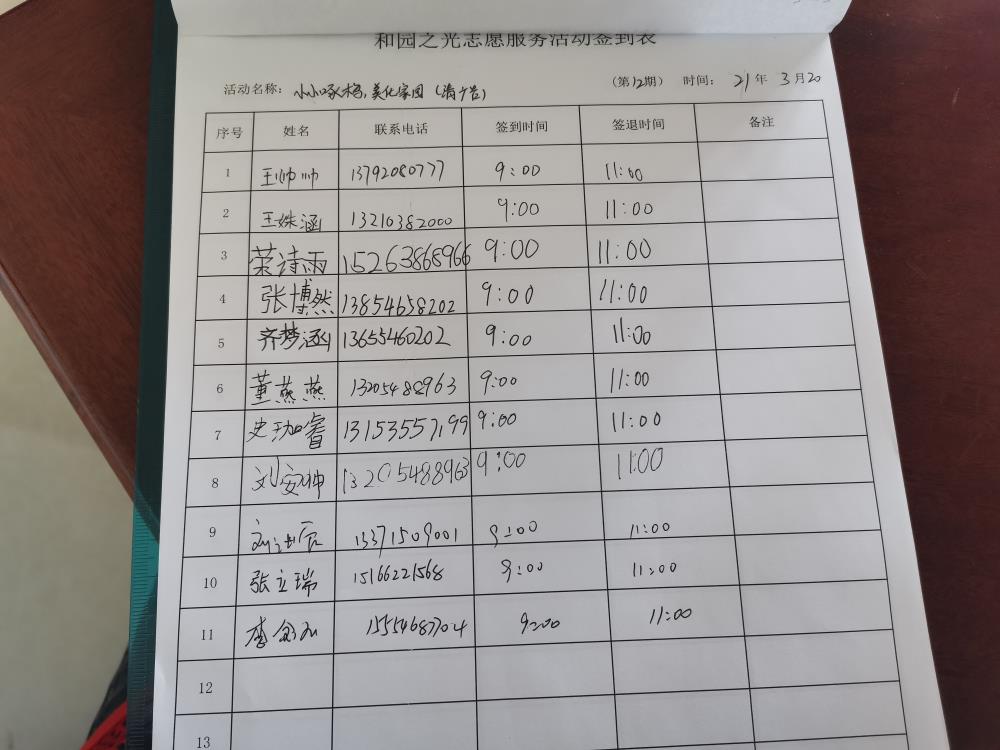 和园之光志愿服务活动签到表
活动名称: 小小啄木鸟,美化家园(清广告) (第12期) 时间: 21年 3月20
序号 姓名 联系电话 签到时间 签退时间 备注
1 王帅帅 13792080777 9:00 11:00
2 王姝涵 13210382000 9:00 11:00
3 荣诗雨 15263868966 9:00 11:00
4 张博然 13854658202 9:00 11:00
5 齐梦涵 13655460202 9:00 11:00
6 董燕燕 13205488963 9:00 11:00
7 史珈睿 13153557199 9:00 11:00
8 刘安坤 13205488963 9:00 11:00
9 刘 13371509001 9:00 11:00
10 张立瑞 15166221568 9:00 11:00
11 李 15554687704 9:00 11:00
12
13